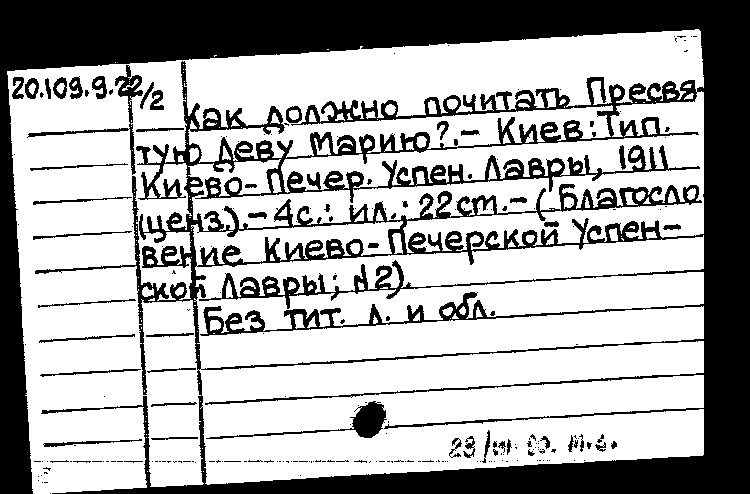 20.109.9.22/2
Как должно почитать Пресвя-
тую Деву Марию?.- Киев: Тип.
Киево-Печер. Успен. Лавры, 1911
(ценз.).- 4с.: ил.; 22 cm.- (Благосло-
вение Киево-Печерской Успен-
ской Лавры; N2).
Без тит. л. и обл.